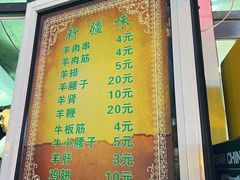 新疆味
羊肉串 4元
羊肉筋 4元
羊排 5元
羊腰子 20元
羊肾 10元
羊鞭 20元
牛板筋 4元
牛小腰子 5元
羊肝 3元
鸡翅 10元
TEAM CHIN